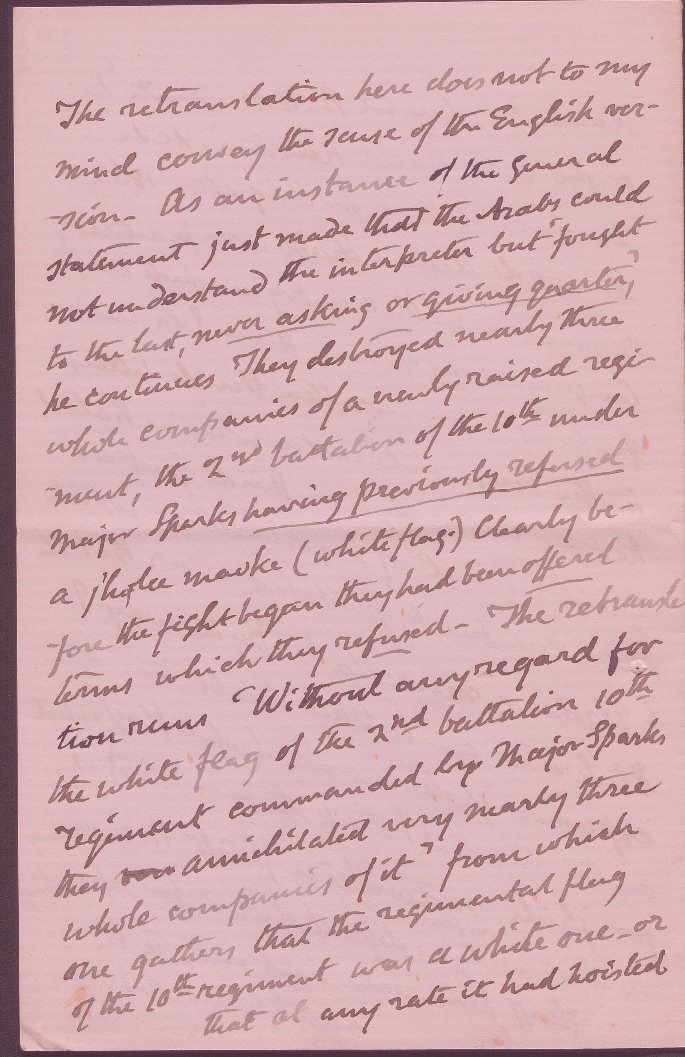 The retranslation here does not to my
mind convey the sense of the English ver-
-sion - As an instance of the general
statement just made that the Arabs could
not understand the interpreter but "fought
to the last, never asking or giving quarter,"
he continues "They destroyed nearly three
whole companies of a newly raised regi-
-ment, the 2nd battalion of the 10th under
Major Sparks having previously refused
a marke (white flag.) Clearly be-
-fore the fight began they had been offered
terms which they refused - The retransla
tion runs "Without any regard for
the white flag of the 2nd battalion 10th
regiment commanded by Major Sparks
they annihilated very nearly three
whole companies of it" from which
one gathers that the regimental flag
of the 10th regiment was a white one - or
that at any rate it had hoisted